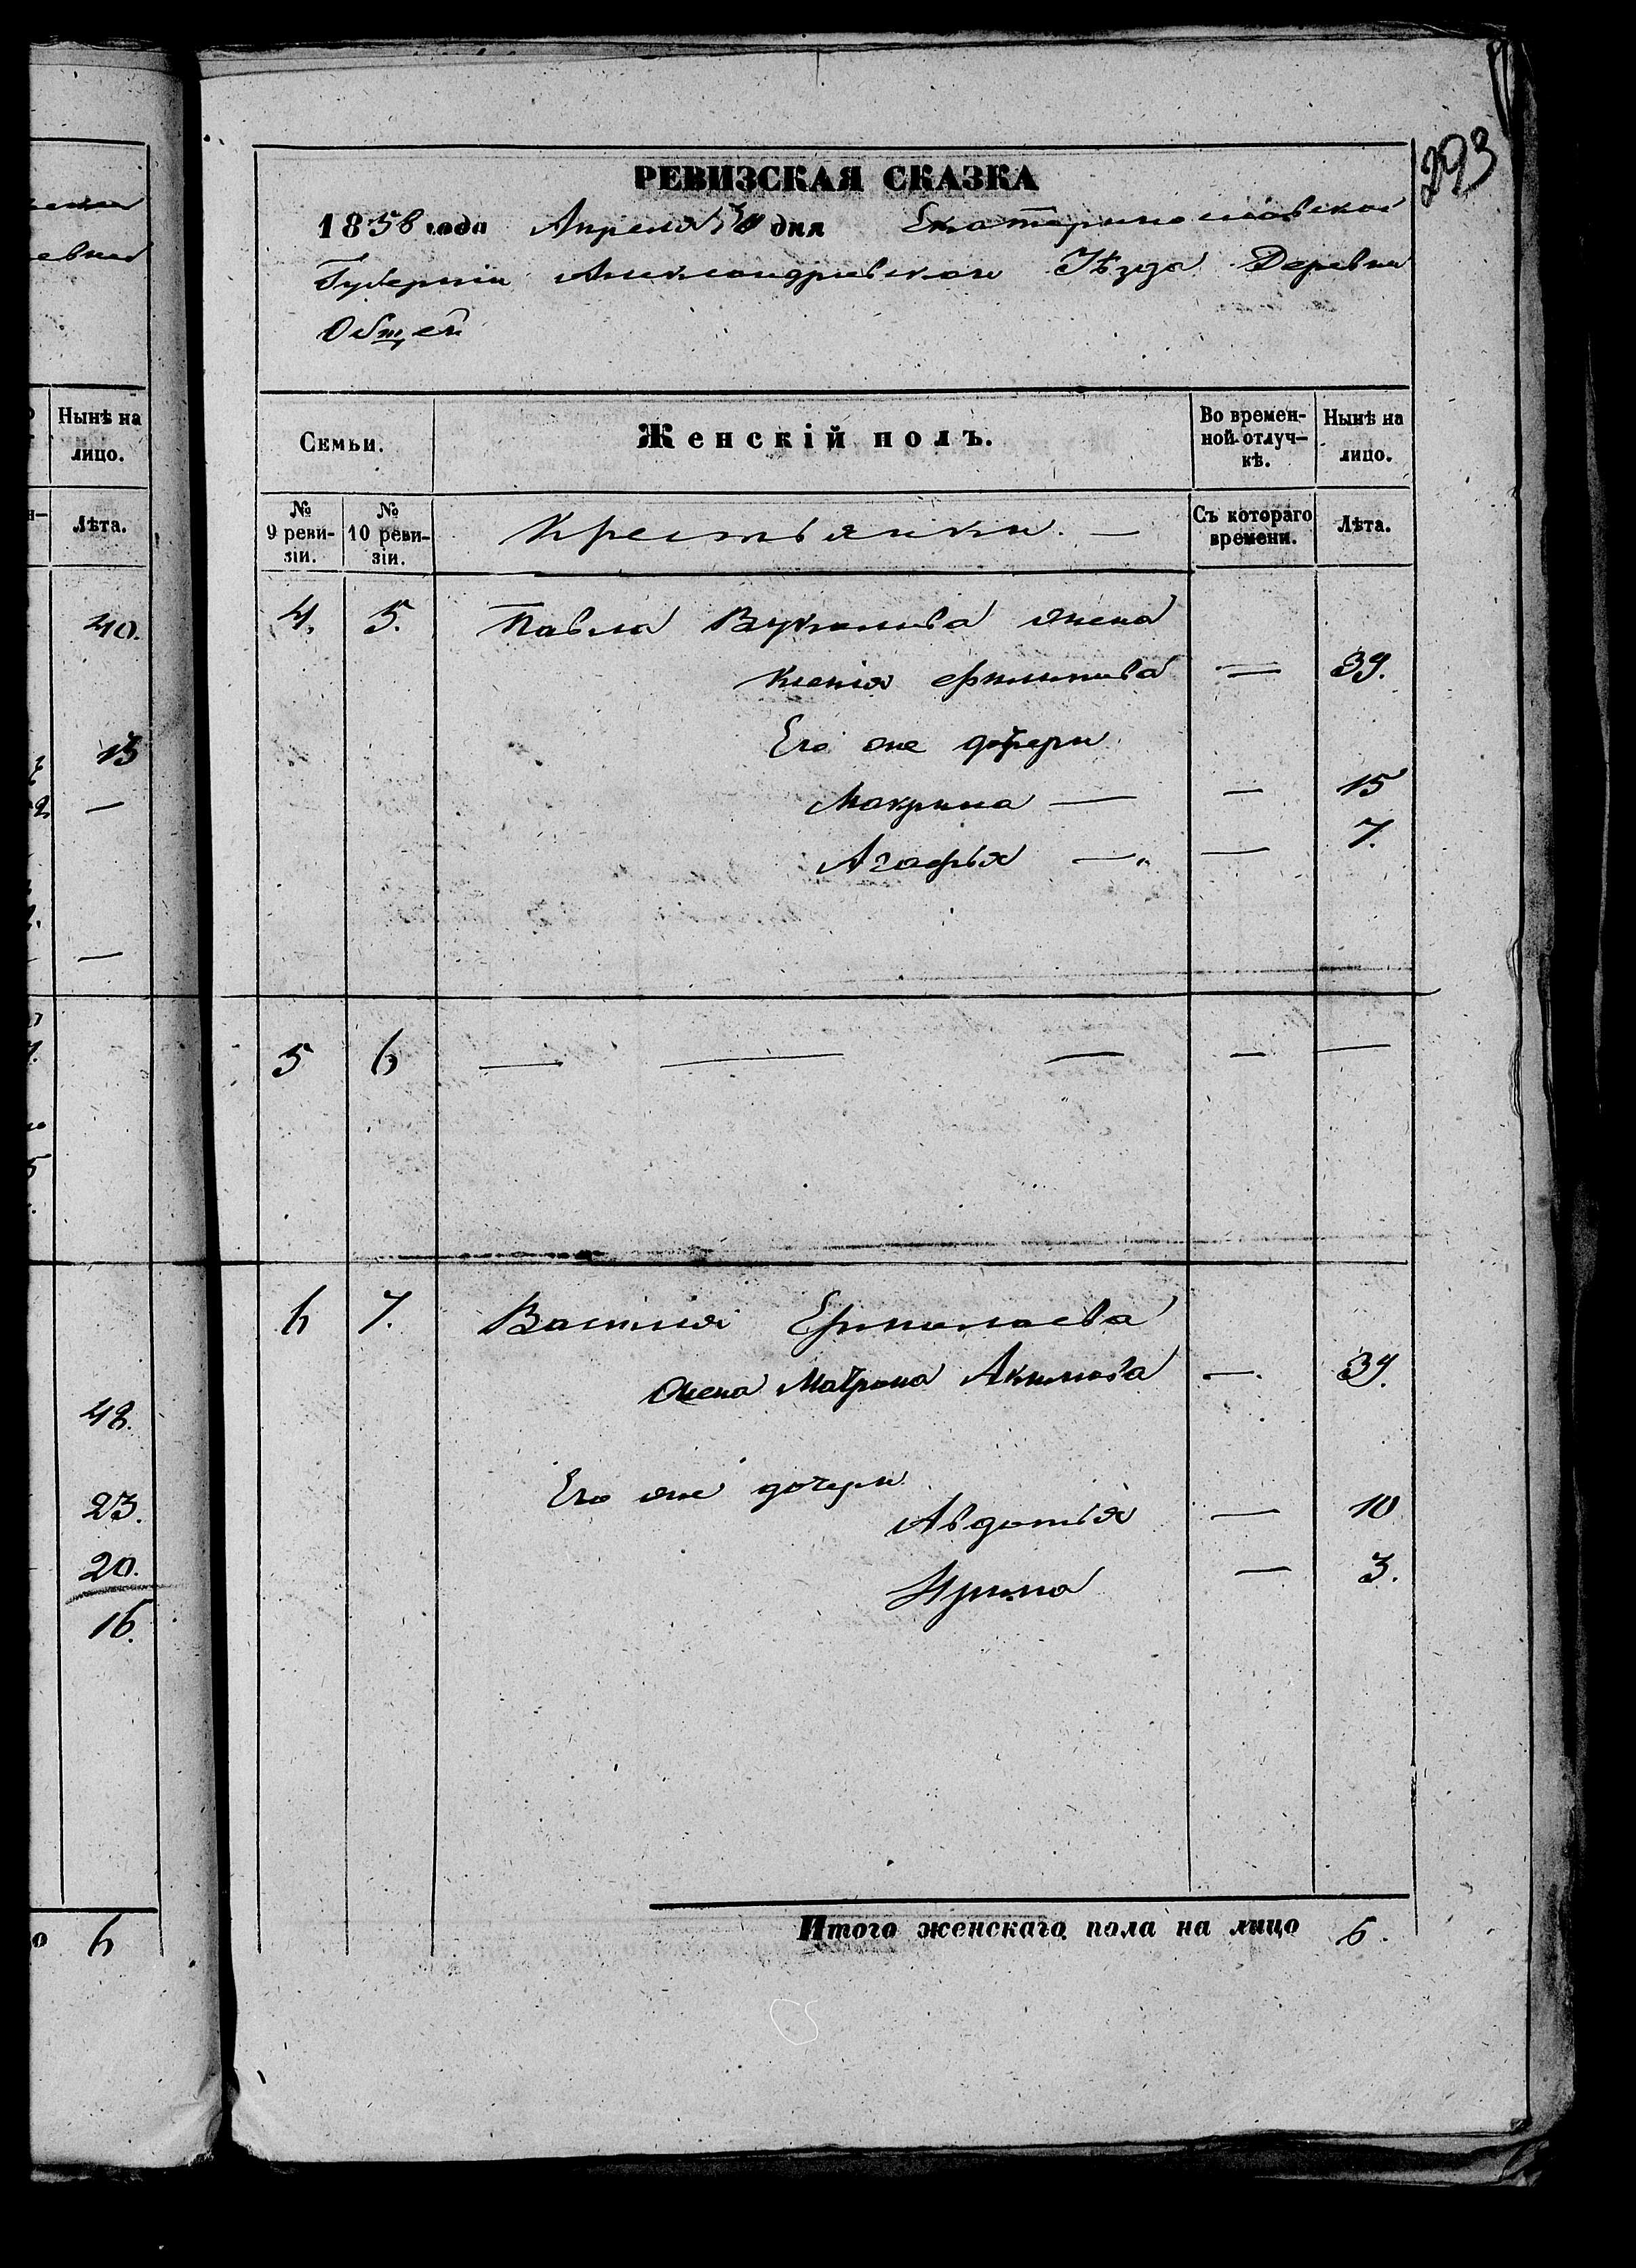 293
РЕВИЗСКАЯ СКАЗКА
1858 года Апреля 30 дня Екатеринославской
Губерніи Александровскаго Уѣзда Деревни
Общей
Семьи.
Женскій полъ.
Во времен-
ной отлуч-
кѣ.
Нынѣ на
лицо.
№
9 реви-
зіи.
№
10 реви-
зіи.
Крестьянки. —
Съ котораго
времени.
Лѣта.
4. 5. Павла жена
Ксенія Филипова — 39.
Его же дочери
Макрина — — 15
Агафья — — 7.
5 6 — — — — —
6 7. Василія Ермолаева
жена Матрона Акимова — 39.
Его же дочери
Авдотья — 10
Ирина — 3.
Итого женскаго пола на лицо 6.
Нынѣ на
лицо.
Лѣта.
40.
15
—
—
48.
23.
20.
16.
6